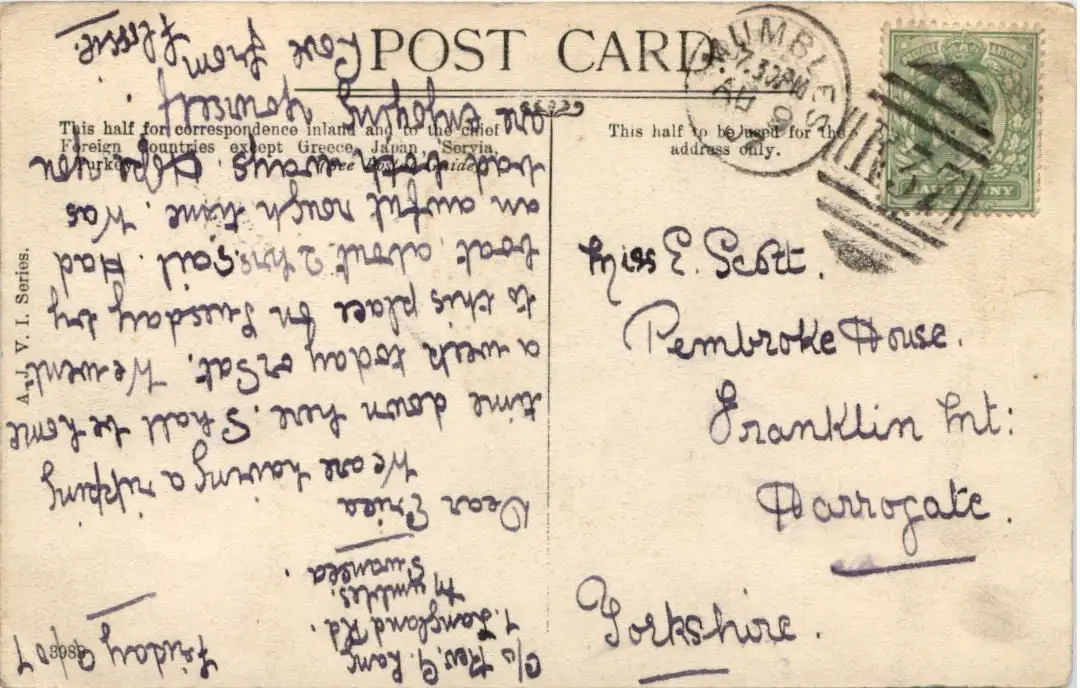 POST CARD
This half for correspondence inland and to the chief
Foreign Countries except Greece, Japan, Servia,
Turkey
This half to be used for the
address only.
A. J. V. I. Series.
MUMBLES
7.30PM
AU 9
HALFPENNY
Miss E. Scott.
Pembroke House.
Franklin Mt:
Harrogate.
Yorkshire.
C/o Rev. G. Lang
7. Langland Rd.
Mumbles.
Swansea.
Friday 9/07
Dear Erica
We are having a ripping
time down here. Shall be home
a week today or Sat. We went
to this place on Tuesday by
boat about 2 hrs. sail. Had
an awful rough time. Was
bad both ways. Hope you
are enjoying yourself.
Love from